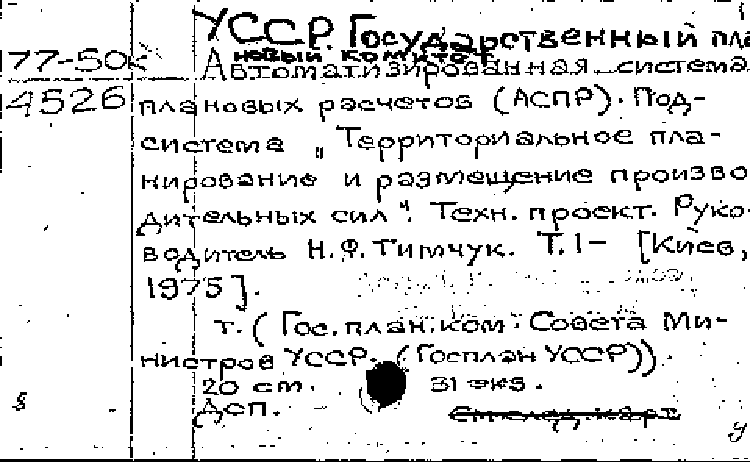 УССР. Государственный пла
новый комитет
77-50к Автоматизированная система
4526 плановых расчетов (АСПР). Под-
система „Территориальное пла-
нирование и размещение произво
дительных сил". Техн. проект. Руко-
водитель Н.Ф. Тимчук. Т.1- [Киев,
1975].
т. (Гос. план. ком. Совета Ми-
нистров УССР. (Госплан УССР))
20 см. 31 экз.
Дсп.